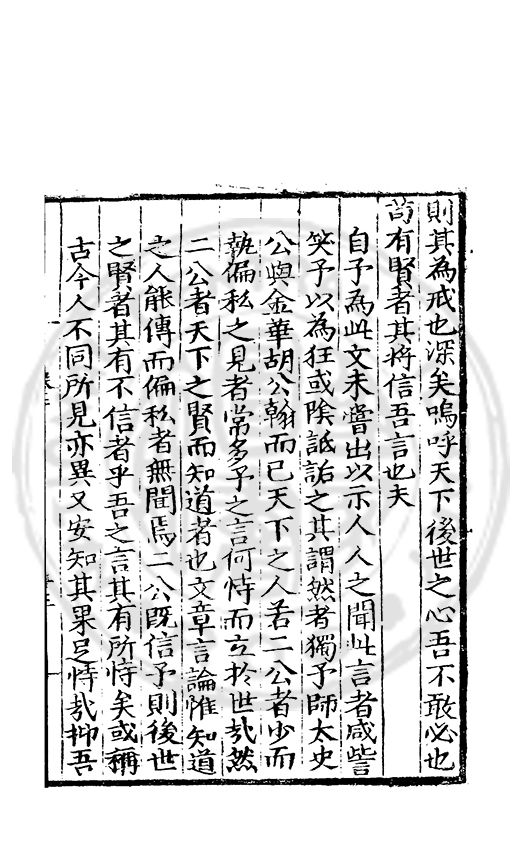 則其為戒也深矣嗚呼天下後世之心吾不敢必也
苟有賢者其將信吾言也夫
自予為此文未嘗出以示人人之聞此言者咸訾
笑予以為狂或陰詆詬之其謂然者獨予師太史
公與金華胡公翰而已天下之人若二公者少而
執偏私之見者常多予之言何恃而立於世哉然
二公者天下之賢而知道者也文章言論惟知道
之人能傳而偏私者無聞焉二公既信予則後世
之賢者其有不信者乎吾之言其有所恃矣或稱
古今人不同所見亦異又安知其果足恃哉抑吾